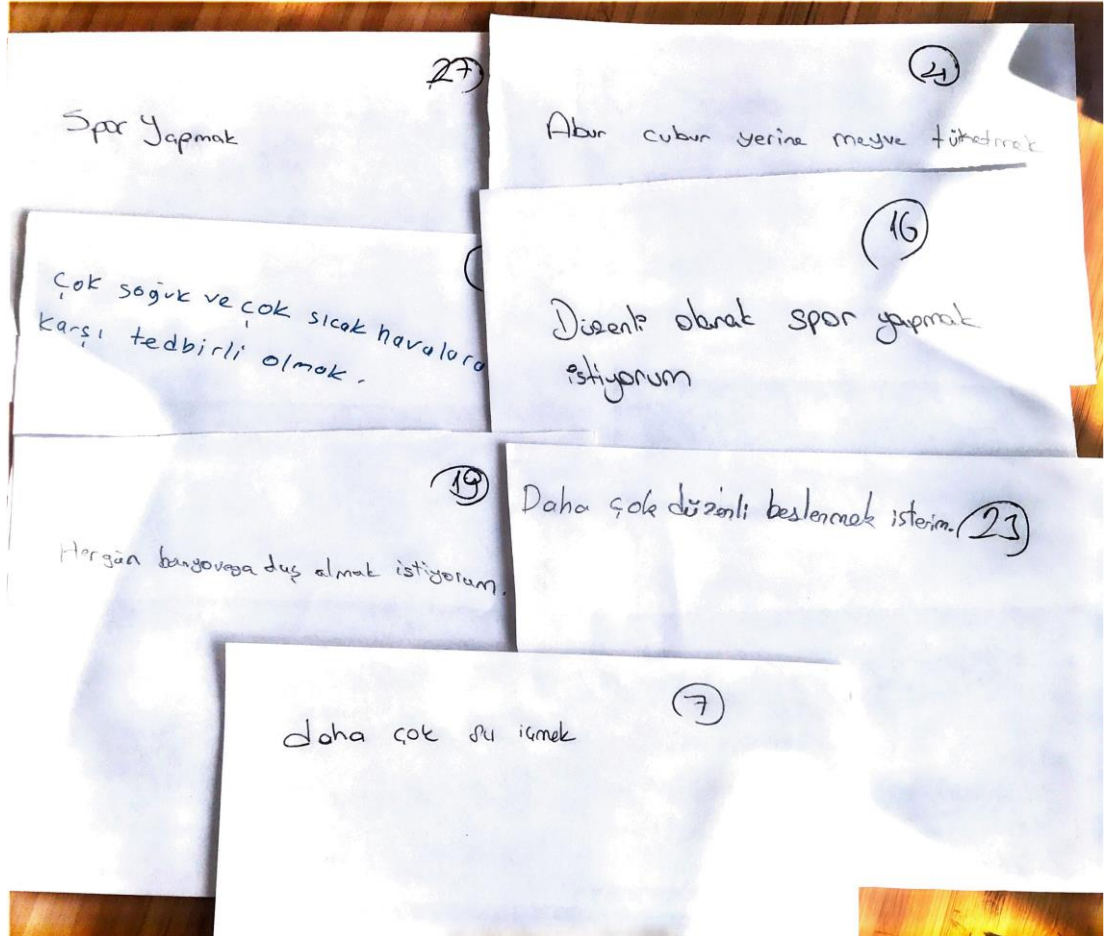 27
Spor Yapmak
21
Abur cubur yerine meyve tüketmek
Çok soğuk ve çok sıcak havalara
karşı tedbirli olmak.
16
Düzenli olarak spor yapmak
istiyorum
19
Hergün banyoveya duş almak istiyorum.
Daha çok düzenli beslenmek isterim. 23
7
daha çok su içmek